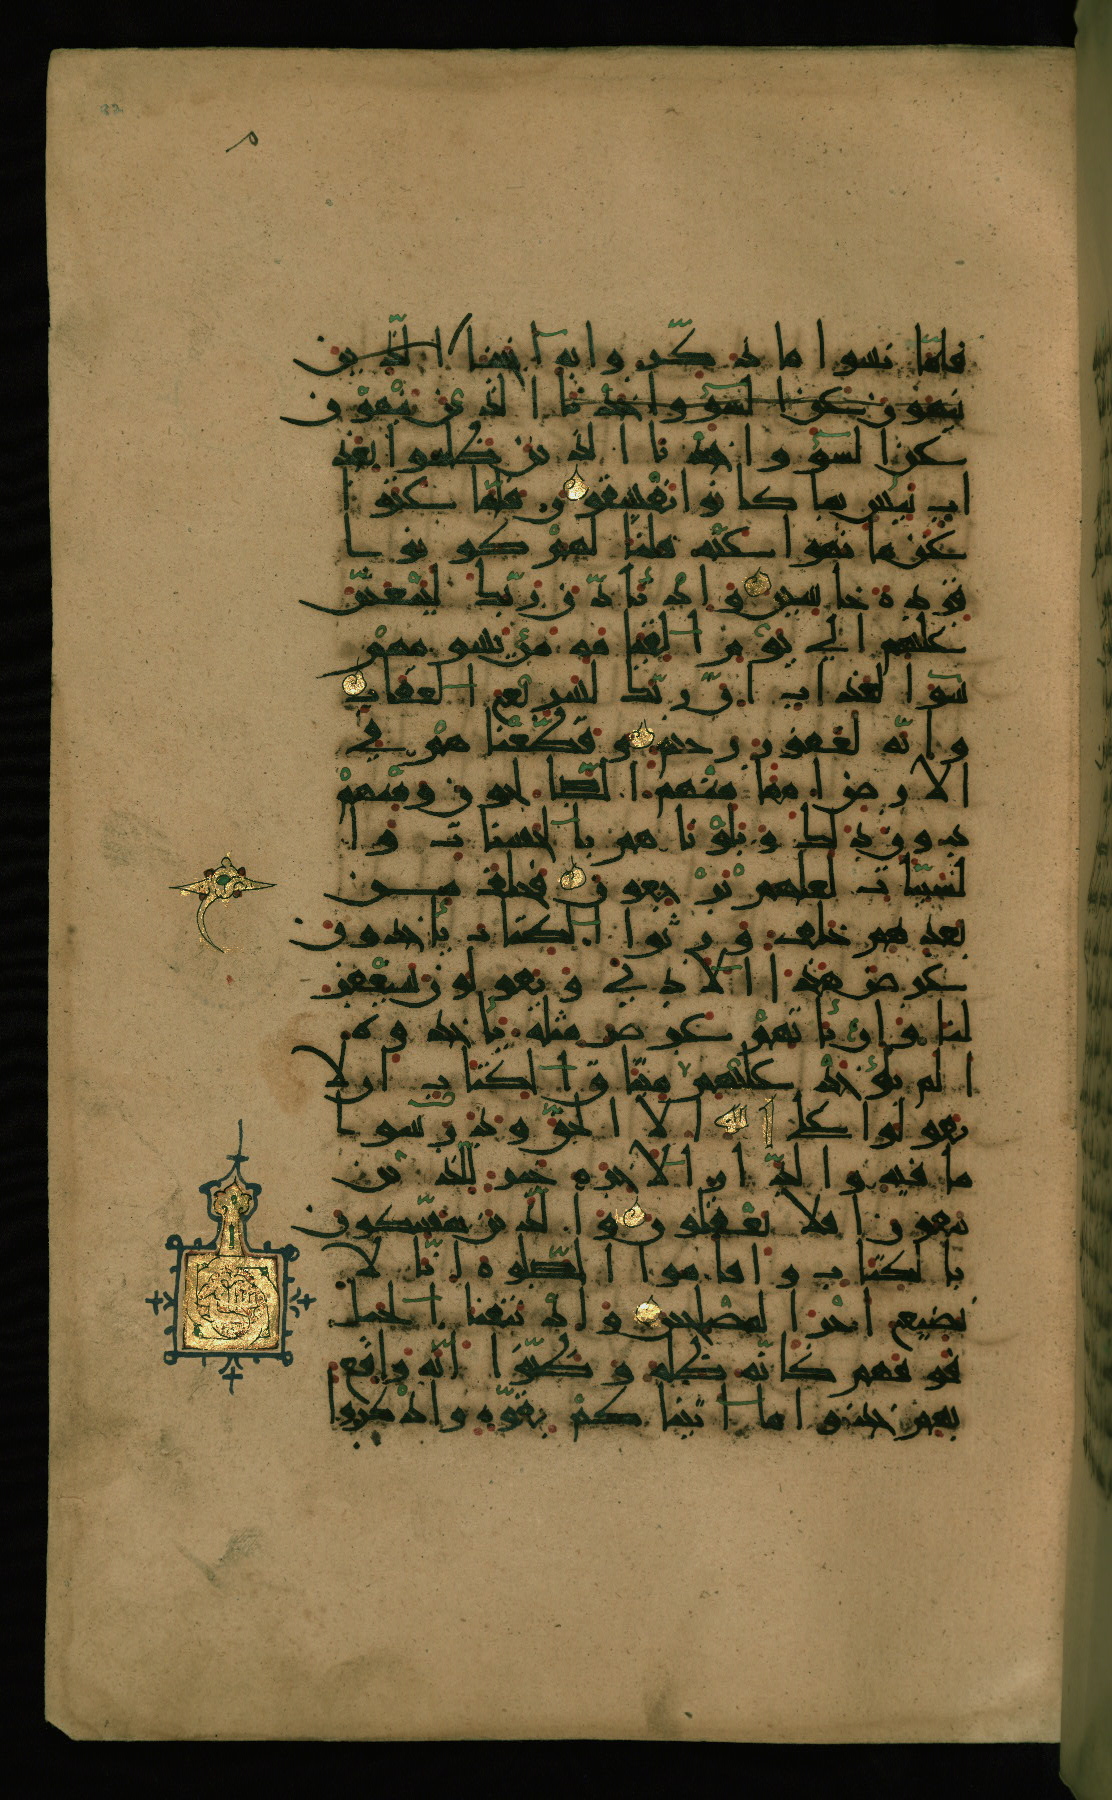 فلما نسوا ما ذكروا به انجينا الذين
ينهون عن السوء واخذنا الذين ينهون
عن السوء واخذنا الذين ظلموا بعذ
اب بئيس بما كانوا يفسقون فلما عتوا
عن ما نهوا عنه قلنا لهم كونوا
قردة خاسئين واذ تاذن ربك ليبعثن
عليهم الى يوم القيامة من يسومهم
سوء العذاب ان ربك لسريع العقاب
وانه لغفور رحيم وقطعناهم في
الارض امما منهم الصالحون ومنهم
دون ذلك وبلوناهم بالحسنات وا
لسيئات لعلهم يرجعون فخلف من
بعدهم خلف ورثوا الكتاب ياخذون
عرض هذا الادنى ويقولون سيغفر
لنا وان ياتهم عرض مثله ياخذوه
الم يؤخذ عليهم ميثاق الكتاب ان لا
يقولوا على الله الا الحق ودرسوا
ما فيه والدار الاخرة خير للذين
يتقون افلا تعقلون والذين يمسكون
بالكتاب واقاموا الصلوة انا لا
نضيع اجر المصلحين واذ نتقنا الجبل
فوقهم كانه ظلة وظنوا انه واقع
بهم خذوا ما اتيناكم بقوة واذكروا